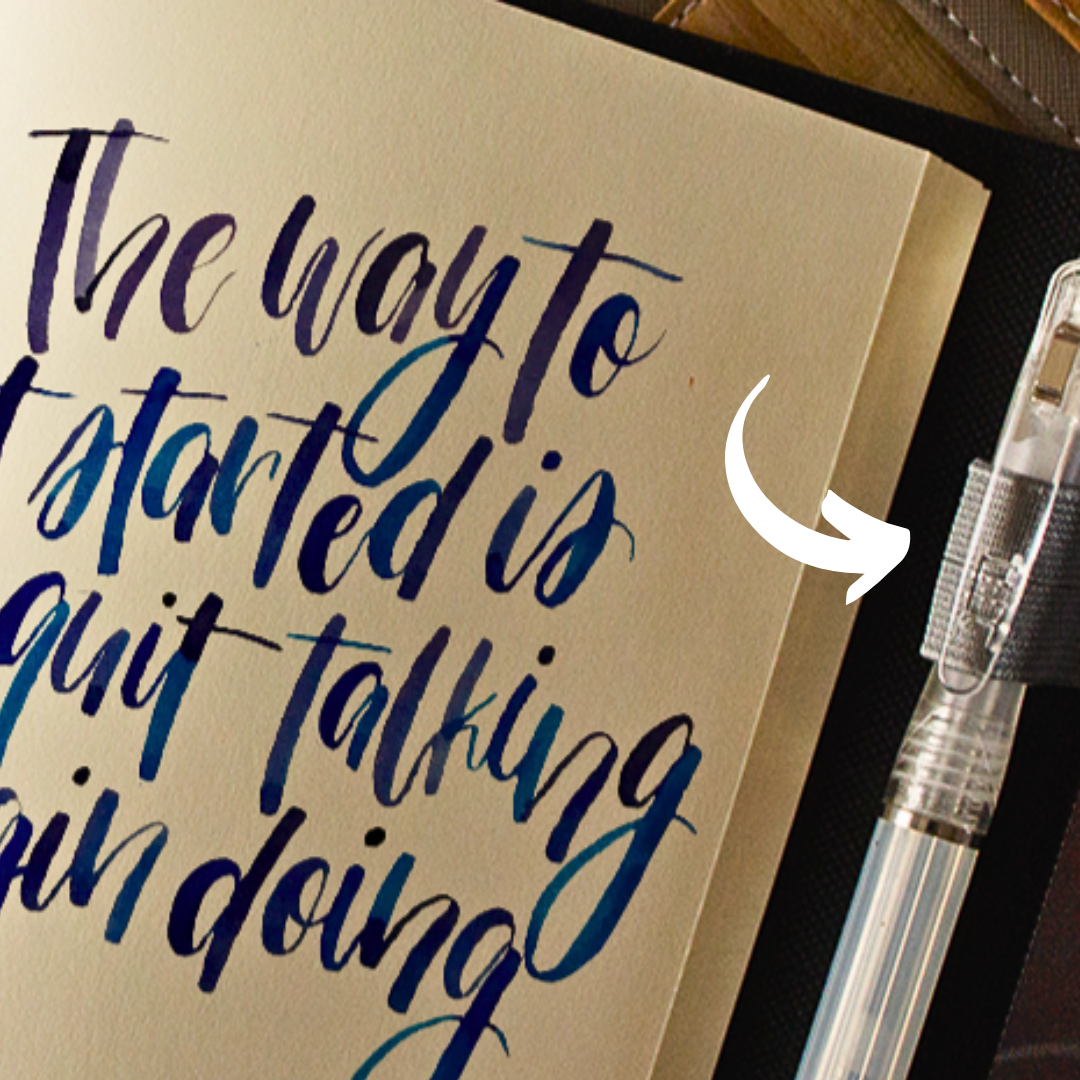 The way to
t started is
quit talking
gin doing